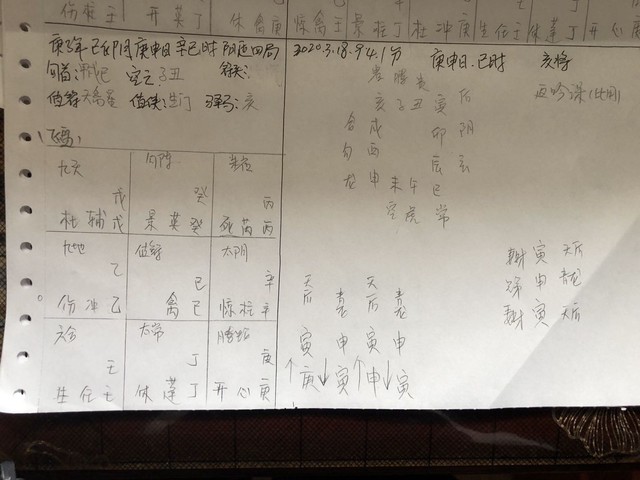 伤 任 壬 开 英 丁 休 禽 庚 惊 禽 壬 景 柱 丁 杜 冲 庚 生 任 壬 休 蓬 丁 开 心
庚子年己卯月庚申日辛巳时 阳遁四局
旬首:甲戌己 空亡:子丑 符头:
值符:天禽星 值使:生门 驿马:亥
(飞盘)
九天 勾陈
戊 癸 丙
杜 辅 戊 景 英 癸 死 芮 丙
九地 值符 太阴
乙 己 辛
伤 冲 乙 禽 己 惊 柱 辛
六合 太常 螣蛇
壬 丁 庚
生 任 壬 休 蓬 丁 开 心 庚
2020.3.18.9:41分 庚申日.巳时 亥将
贵 后
亥 子 丑 寅
合 戌 卯 阴
勾 酉 辰 玄
龙 申 未 午 巳 常
空 虎
返吟课(比用)
财 寅 天后
兄弟 申 青龙
财 寅 天后
天后 青龙 天后 青龙
寅 申 寅 申
↑庚↓寅↑申↓寅